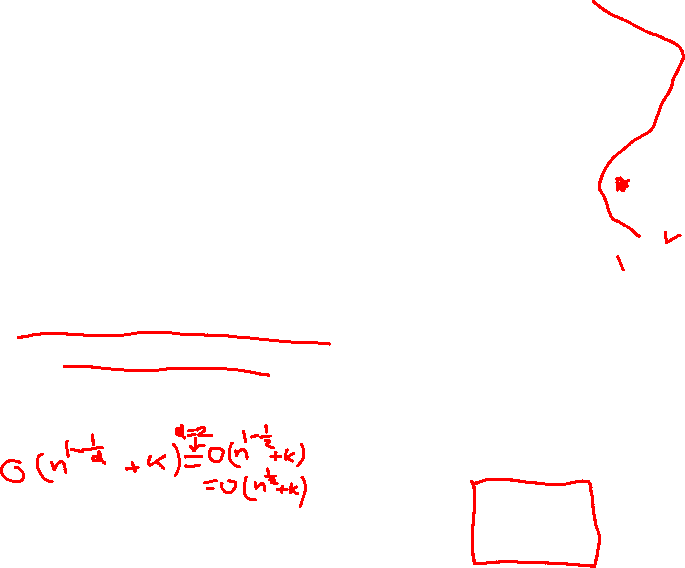 O(n^{1-\frac{1}{d}} + k) \overset{d=2}{\underset{\downarrow}{=}} O(n^{1-\frac{1}{2}} + k)
= O(n^{\frac{1}{2}} + k)